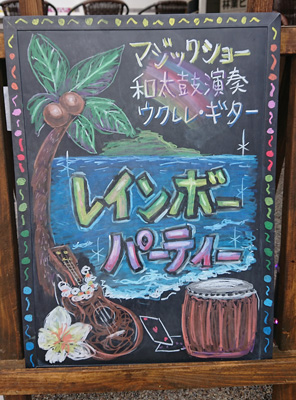 マジックショー
和太鼓演奏
ウクレレ・ギター
レインボー
パーティー